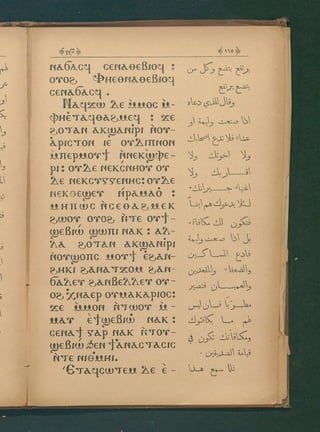 ⲛⲁϭⲁⲥϥ ⲥⲉⲛⲁⲑⲉⲃⲓⲟϥ :
ⲟⲩⲟϩ ⲫⲏⲉⲑⲛⲁⲑⲉⲃⲓⲟϥ
ⲥⲉⲛⲁϭⲁⲥϥ .
Ⲛⲁϥϫⲱ ⲇⲉ ⲙ̀ⲙⲟⲥ ⲙ̀-
ⲫⲏⲉ̀ⲧⲁϥⲑⲁϩⲙⲉϥ : ϫⲉ
ϩⲟⲧⲁⲛ ⲁⲕϣⲁⲛⲓ̀ⲣⲓ ⲛ̀ⲟⲩ-
ⲁ̀ⲣⲓⲥⲧⲟⲛ ⲓⲉ ⲟⲩⲇⲓⲡⲛⲟⲛ
ⲙ̀ⲡⲉⲣⲙⲟⲩϯ ⲛ̀ⲛⲉⲕϣ̀ⲫⲉ-
ⲣⲓ : ⲟⲩⲇⲉ ⲛⲉⲕⲥⲛⲏⲟⲩ ⲟⲩ
ⲇⲉ ⲛⲉⲕⲥⲩⲅⲅⲉⲛⲏⲥ : ⲟⲩⲇⲉ
ⲛⲉⲕⲑⲉϣⲉⲩ ⲛ̀ⲣⲁⲙⲁⲟ̀ :
ⲙⲏⲡⲱⲥ ⲛ̀ⲥⲉⲑⲁϩⲙⲉⲕ
ϩⲱⲟⲩ ⲟⲩⲟϩ ⲛ̀ⲧⲉ ⲟⲩϯ-
ϣⲉⲃⲓⲱ̀ ϣⲱⲡⲓ ⲛⲁⲕ : ⲁⲗ-
ⲗⲁ ϩⲟⲧⲁⲛ ⲁⲕϣⲁⲛⲓ̀ⲣⲓ
ⲛ̀ⲟⲩϣⲟⲡⲥ ⲙⲟⲩϯ ⲉ̀ϩⲁⲛ-
ϩⲏⲕⲓ ϩⲁⲛⲁⲧϫⲟⲙ ϩⲁⲛ-
ϭⲁⲗⲉⲩ ϩⲁⲛⲃⲉⲗⲗⲉⲩ ⲟⲩ-
ⲟϩ ⲭ̀ⲛⲁⲉⲣ ⲟⲩⲙⲁⲕⲁⲣⲓⲟⲥ:
ϫⲉ ⲙ̀ⲙⲟⲛ ⲛ̀ⲧⲱⲟⲩ ⲙ̀-
ⲙⲁⲩ ⲉ̀ϯϣⲉⲃⲓⲱ̀ ⲛⲁⲕ :
ⲥⲉⲛⲁϯ ⲅⲁⲣ ⲛⲁⲕ ⲛ̀ⲧⲟⲩ-
ϣⲉⲃⲓⲱ̀ ϧⲉⲛ ϯⲁ̀ⲛⲁⲥⲧⲁⲥⲓⲥ
ⲛ̀ⲧⲉ ⲛⲓⲑ̀ⲙⲏⲓ.
Ⲉⲧⲁϥⲥⲱⲧⲉⲙ ⲇⲉ ⲉ̀-
﴿ ١٦٥ ﴾
يرتفع يتضع وكل من
يتضع يرتفع
وقال للذي دعاه
اذا صنعت وليمة او
عشاء فلا تدع اصحابك
ولا اخوتك ولا
اقاربك ولا
اغنياء جيرانك
لئلا يدعوك هم ايضا
فتكون لك مكافاة
بل اذا صنعت وليمة
فادع المساكين
والضعفاء والمقعدين
والعميان فتصير
مطوبًا فان ليس
لهم ما يكافئوك
ومكافأتك تكون في
قيامة الصديقين
فلما سمع هذا